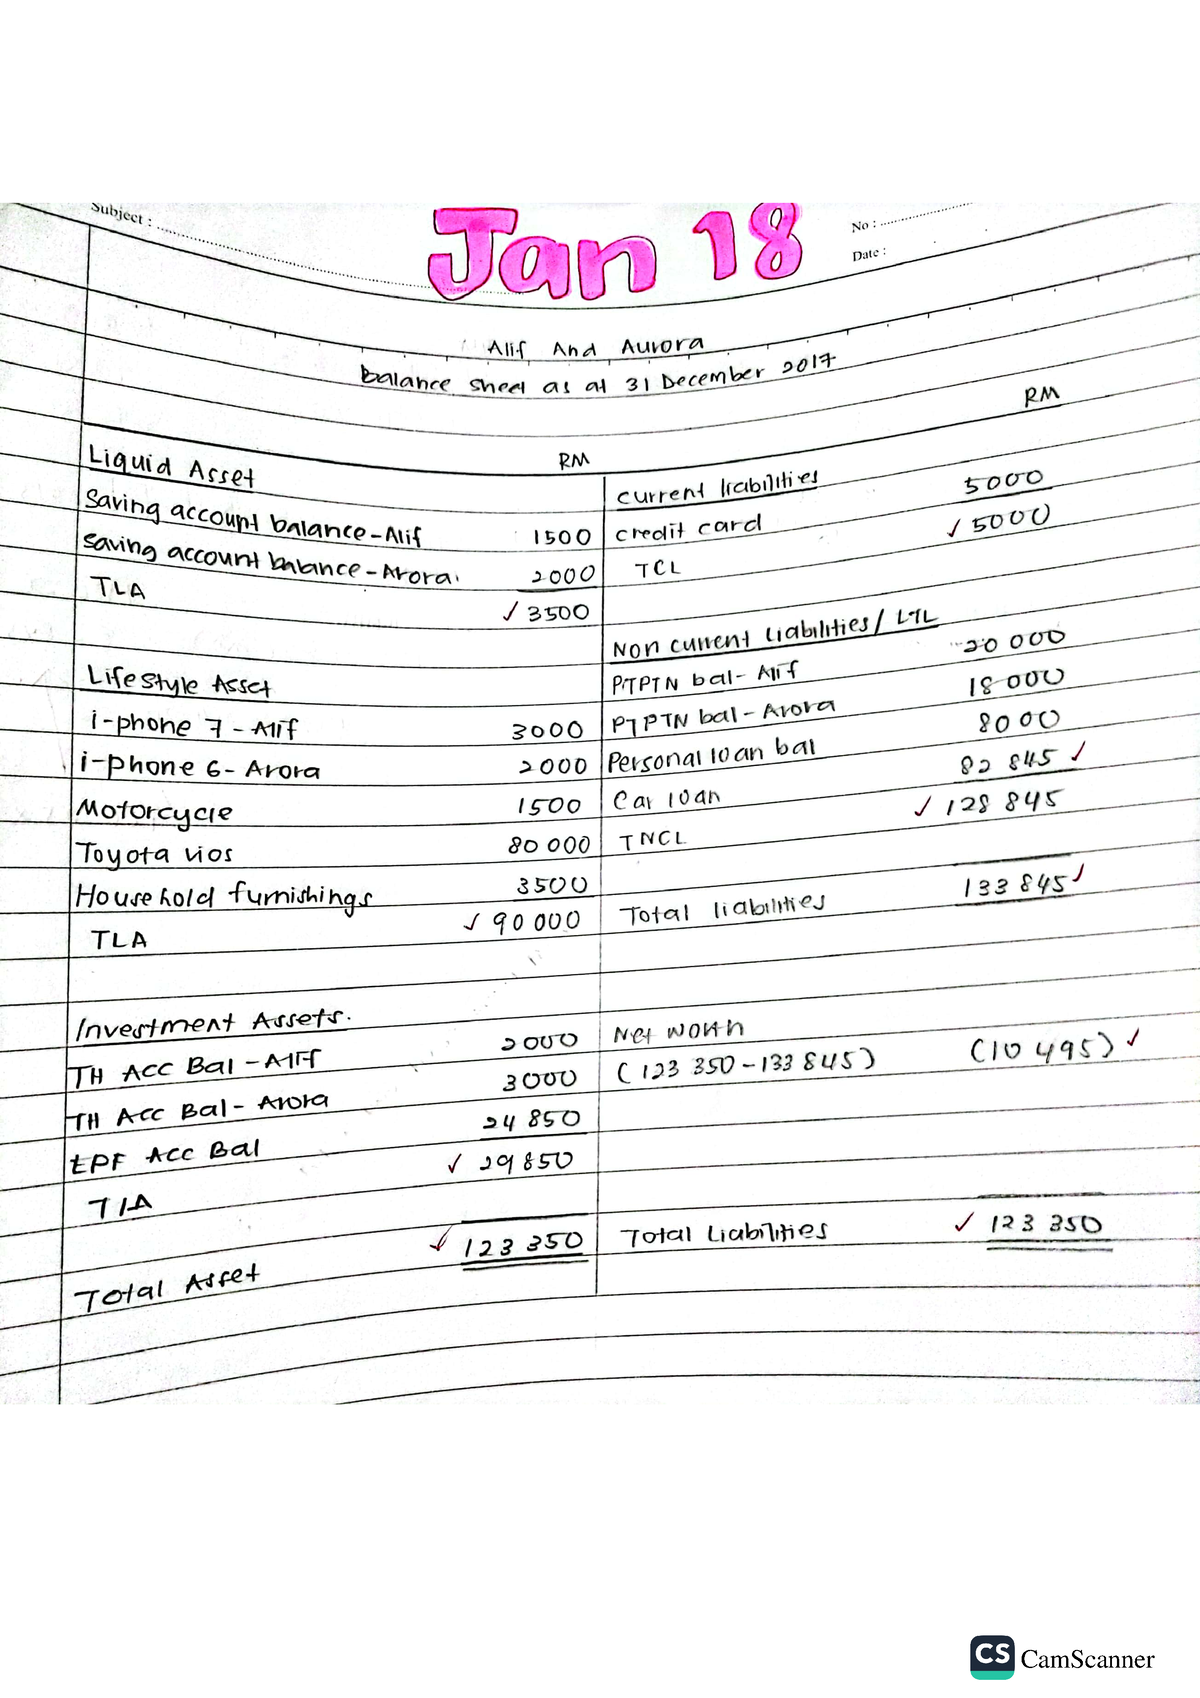 Subject :
Jan 18
No :
Date :
Alif And Aurora
balance sheet as at 31 December 2017
RM
RM
Liquid Asset
Saving account balance - Alif 1500
Saving account balance - Arora. 2000
TLA
✓ 3500
Lifestyle Asset
i-phone 7 - Alif 3000
i-phone 6 - Arora 2000
Motorcycle 1500
Toyota vios 80 000
Household furnishings 3500
TLA ✓ 90 000
Investment Assets.
TH ACC Bal - Alif 2000
TH ACC Bal - Arora 3000
EPF ACC Bal 24 850
TIA ✓ 29 850
Total Asset ✓ 123 350
current liabilities
credit card 5000
TCL ✓ 5000
Non current liabilities / LTL
PTPTN bal - Alif 20 000
PTPTN bal - Arora 18 000
Personal loan bal 8000
Car loan 82 845 ✓
TNCL ✓ 128 845
Total liabilities 133 845 ✓
Net worth
(123 350 - 133 845) (10 495) ✓
Total Liabilities ✓ 123 350
CS CamScanner